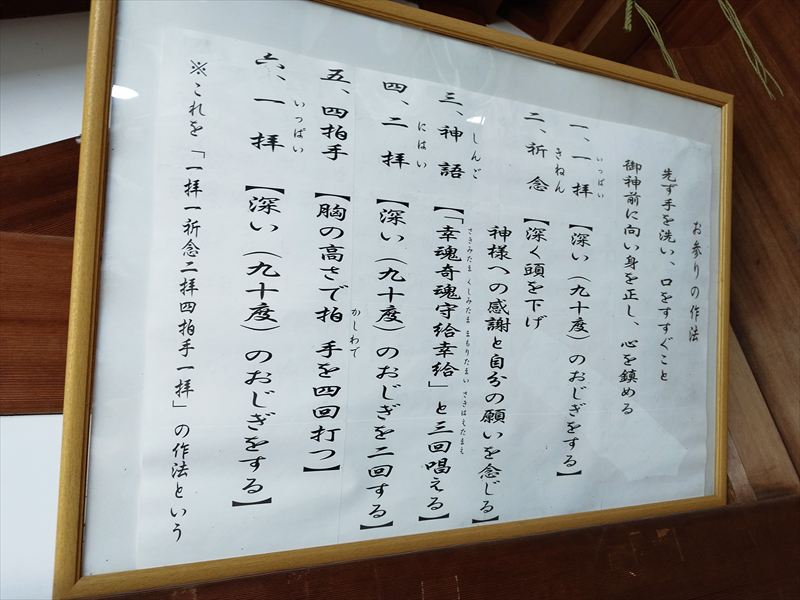 お参りの作法
先ず手を洗い、口をすすぐこと
御神前に向い身を正し、心を鎮める
一、一拝 【深い（九十度）のおじぎをする】
いっぱい
二、祈念 【深く頭を下げ
きねん
神様への感謝と自分の願いを念じる】
三、神語 【「幸魂奇魂守給幸給」と三回唱える】
しんご
さきみたま くしみたま まもりたまい さきはえたまえ
四、二拝 【深い（九十度）のおじぎを二回する】
にはい
五、四拍手 【胸の高さで拍 手を四回打つ】
かしわで
六、一拝 【深い（九十度）のおじぎをする】
いっぱい
※これを「一拝一祈念二拝四拍手一拝」の作法という